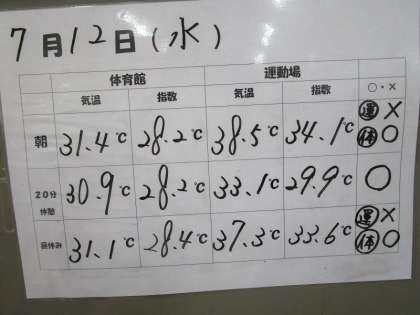 7月12日(水)
体育館 運動場
気温 指数 気温 指数 ○・×
朝 31.4℃ 28.2℃ 38.5℃ 34.1℃ 運× 体○
20分休憩 30.9℃ 28.2℃ 33.1℃ 29.9℃ ○
昼休み 31.1℃ 28.4℃ 37.3℃ 33.6℃ 運× 体○